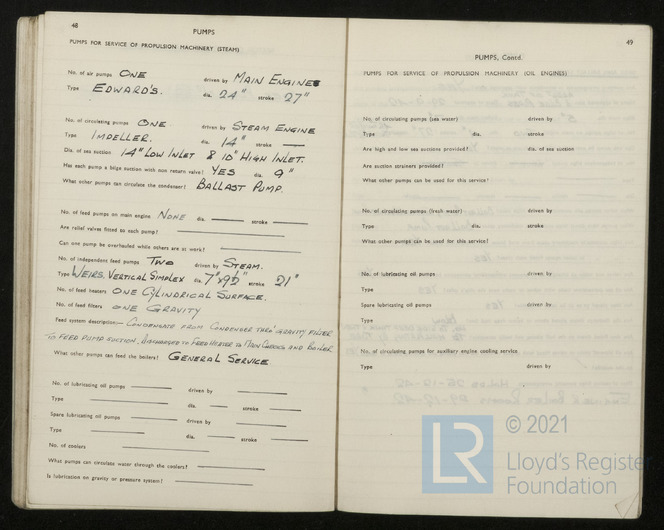 48
PUMPS
PUMPS FOR SERVICE OF PROPULSION MACHINERY (STEAM)
No. of air pumps ONE driven by MAIN ENGINES
Type EDWARD'S. dia. 24" stroke 27"
No. of circulating pumps ONE driven by STEAM ENGINE
Type IMPELLER. dia. 14" stroke
Dia. of sea suction 14" LOW INLET & 10" HIGH INLET.
Has each pump a bilge suction with non return valve? YES dia. 9"
What other pumps can circulate the condenser? BALLAST PUMP.
No. of feed pumps on main engine NONE dia. stroke
Are relief valves fitted to each pump?
Can one pump be overhauled while others are at work?
No. of independent feed pumps TWO driven by STEAM.
Type WEIRS. VERTICAL SIMPLEX dia. 7" x 9½" stroke 21"
No. of feed heaters ONE CYLINDRICAL SURFACE.
No. of feed filters ONE GRAVITY
Feed system description— CONDENSATE FROM CONDENSER THRO' GRAVITY FILTER
TO FEED PUMP SUCTION. DISCHARGED TO FEED HEATER TO MAIN CHECKS AND BOILER
What other pumps can feed the boilers? GENERAL SERVICE
No. of lubricating oil pumps driven by
Type dia. stroke
Spare lubricating oil pumps driven by
Type dia. stroke
No. of coolers
What pumps can circulate water through the coolers?
Is lubrication on gravity or pressure system?
49
PUMPS, Contd.
PUMPS FOR SERVICE OF PROPULSION MACHINERY (OIL ENGINES)
No. of circulating pumps (sea water) driven by
Type dia. stroke
Are high and low sea suctions provided? dia. of sea suction
Are suction strainers provided?
What other pumps can be used for this service?
No. of circulating pumps (fresh water) driven by
Type dia. stroke
What other pumps can be used for this service?
No. of lubricating oil pumps driven by
Type
Spare lubricating oil pumps driven by
Type
No. of circulating pumps for auxiliary engine cooling service
Type driven by
© 2021
LR Lloyd's Register
Foundation